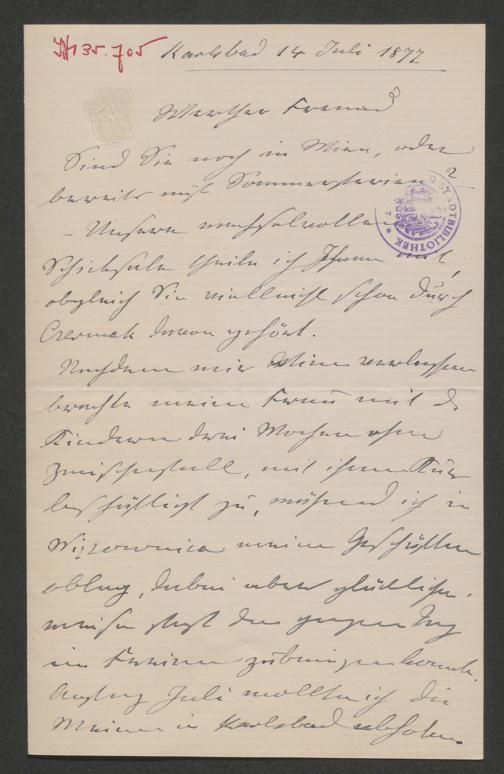 JN 135.705
Karlsbad 14 Juli 1877
Werther Freund
Sind Sie noch in Wien, oder
bereits auf Sommerferien?
– Unsere wechselvollen
Schicksale theile ich Ihnen mit,
obgleich Sie vielleicht schon durch
Czermak davon gehört.
Nachdem wir Wien verlassen
brachte meine Frau mit d.
Kindern drei Wochen ohne
Zwischenfall, mit ihrer Kur
beschäftigt zu, während ich in
meinen Geschäften
oblag, dabei aber glücklicher-
weise fast den ganzen Tag
im Freien zubringen konnte.
Anfang Juli wollte ich die
Meinen in Karlsbad abholen
STADTBIBLIOTHEK